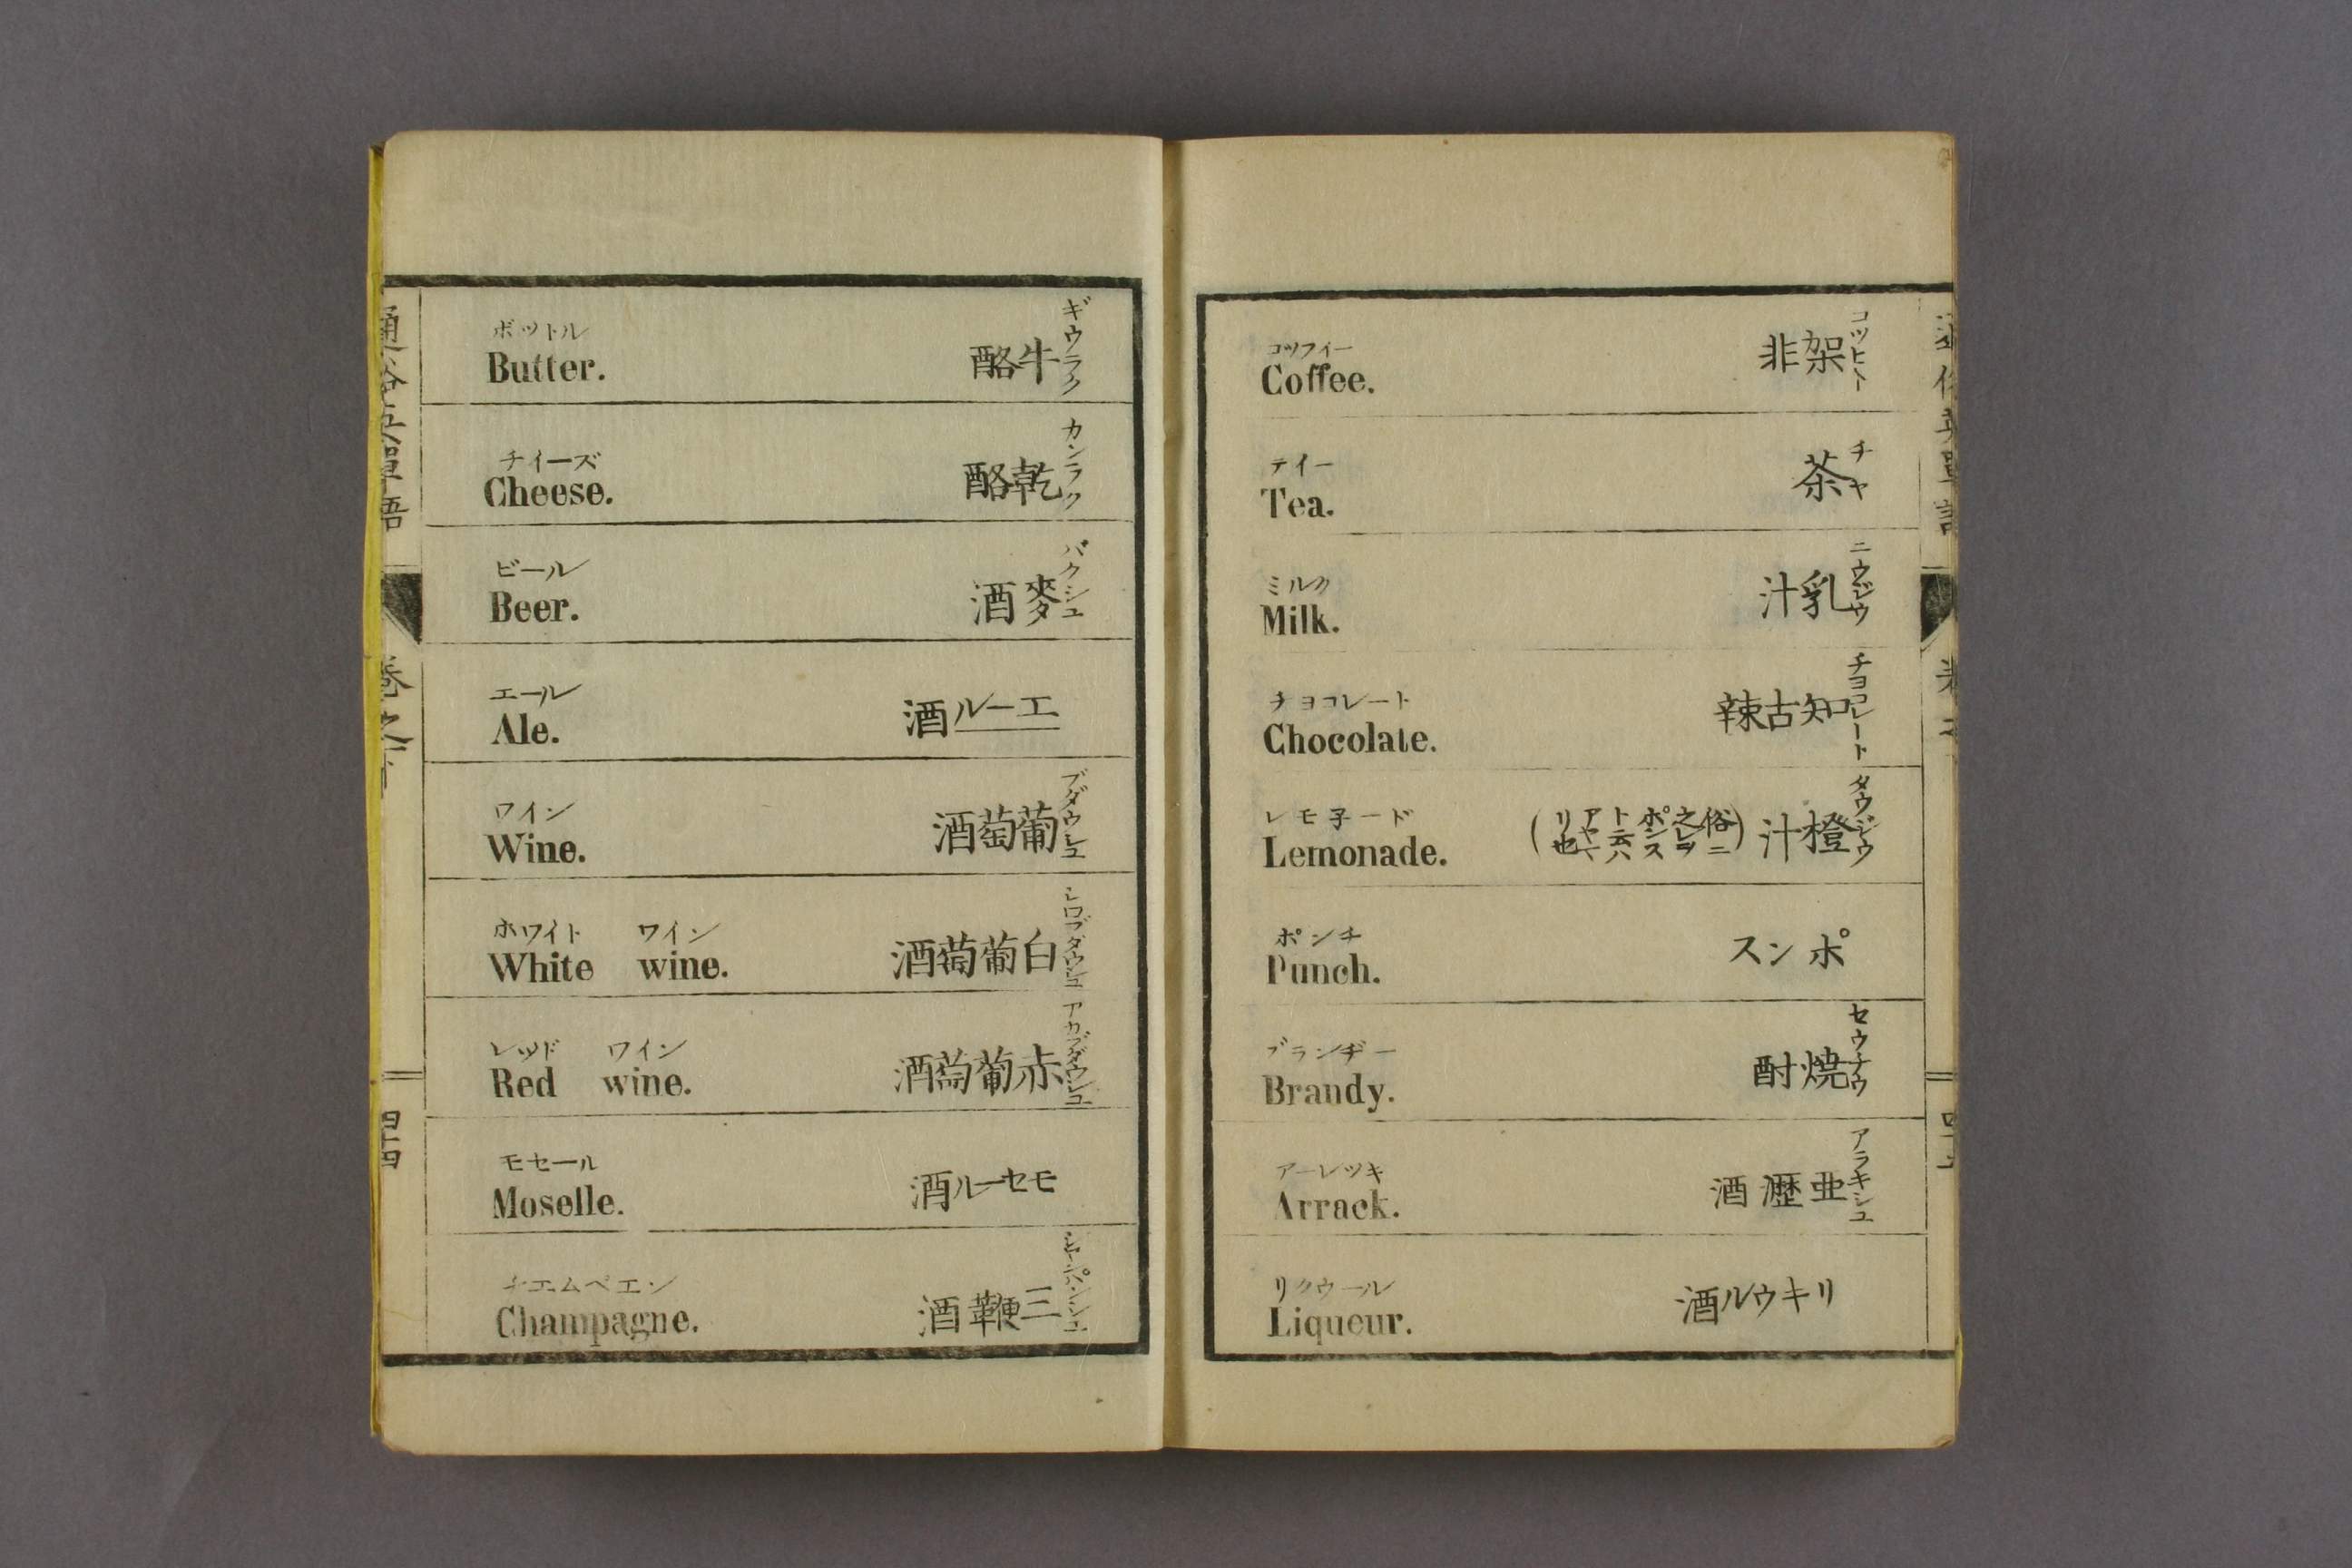 ボットル
Butter.
牛酪
ギウラク
チイーズ
Cheese.
乾酪
カンラク
ビール
Beer.
麥酒
バクシュ
エール
Ale.
エール酒
ワイン
Wine.
葡萄酒
ブダウシュ
ホワイト ワイン
White wine.
白葡萄酒
シロブダウシュ
レッド ワイン
Red wine.
赤葡萄酒
アカブダウシュ
モセール
Moselle.
モセール酒
チエムペエン
Champagne.
三鞭酒
シャンパンシュ
コッフィー
Coffee.
架非
コッヒー
テイー
Tea.
茶
チャ
ミルク
Milk.
乳汁
ニウジウ
チョコレート
Chocolate.
知古辣
チョコレート
レモ子ード
Lemonade.
橙汁
タウジウ
(俗ニ之レヲポンスト云ハアヤマリ也)
ポンチ
Punch.
ポンス
ブランヂー
Brandy.
燒酎
セウチウ
アーレッキ
Arrack.
亜瀝酒
アラキシュ
リクウール
Liqueur.
リキウル酒
四十四